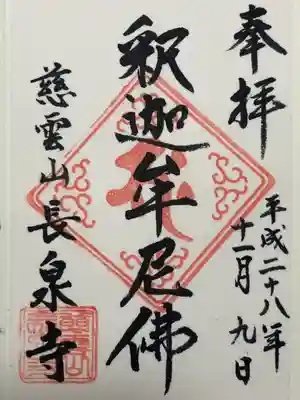 奉拝
平成二十八年
十一月九日
釈迦牟尼佛
慈雲山長泉寺